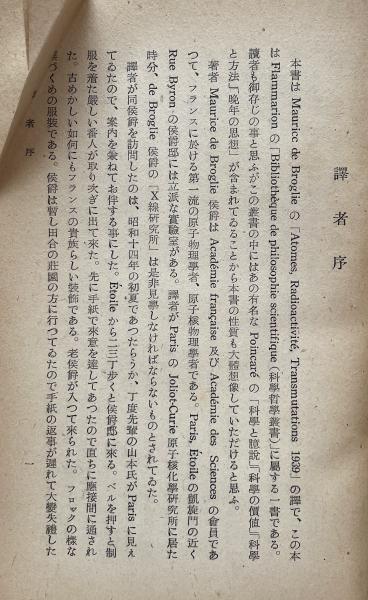 譯者序
本書は Maurice de Broglie の「Atomes, Radioactivité, Transmutations 1939」の譯で、この本
は Flammarion の「Bibliothèque de philosophie scientifique (科學哲學叢書)」に屬する一書である。
讀者も御存じの事と思ふがこの叢書の中にはあの有名な Poincaré の「科學と臆說」「科學の價値」「科學
と方法」「晩年の思想」が含まれてゐることから本書の性質も大體想像していただけると思ふ。
著者 Maurice de Broglie 侯爵は Académie française 及び Académie des Sciences の會員であ
つて、フランスに於ける第一流の原子物理學者、原子核物理學者である。Paris, Étoile の凱旋門の近く
Rue Byron の侯爵邸には立派な實驗室がある。譯者が Paris の Joliot-Curie 原子核化學研究所に居た
時分、de Broglie 侯爵の「X線研究所」は是非見學しなければならないものとされてゐた。
譯者が同侯爵を訪問したのは、昭和十四年の初夏であつたらうか、丁度先輩の山本氏が Paris に見え
てゐたので、案内を兼ねてお伴する事にした。Étoile から二三丁歩くと侯爵邸に來る。ベルを押すと制
服を着た嚴しい番人が取り次ぎに出て來た。先に手紙で來意を達してあつたので直ちに應接間に通され
た。古めかしい如何にもフランスの貴族らしい裝飾である。老侯爵が入つて來られた。フロックの樣な
づくめの服裝である。侯爵は暫し田舍の莊園の方に行つてゐたので手紙の返事が遲れて大變失禮した
者序
一